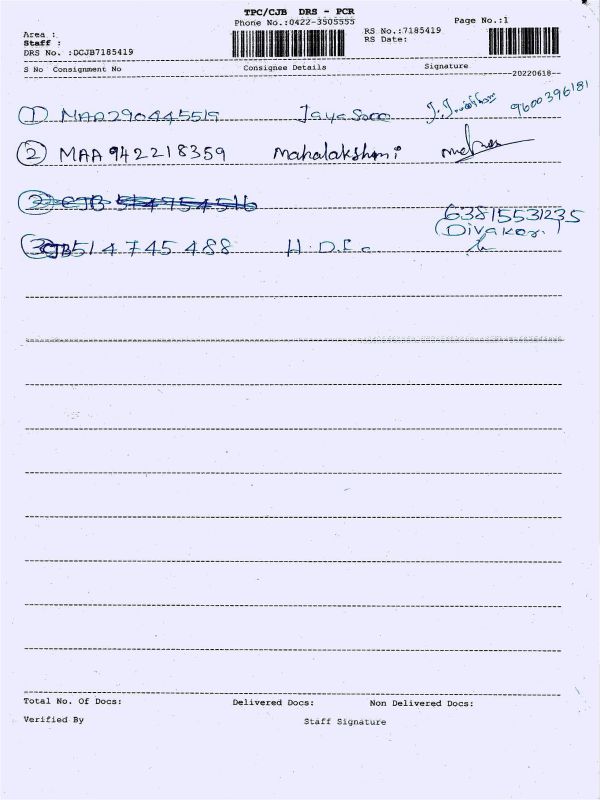 TPC/CJB DRS - PCR
Phone No.:0422-3505555 Page No.:1
Area :
Staff :
DRS No. :DCJB7185419
RS No.:7185419
RS Date:
S No Consignment No Consignee Details Signature
20220618
1 MAA290445519 9600396181
2 MAA 942218359 Mahalakshmi
3 CJB
63815531235
(Divakar.)
3 CJB 514745488 H.D.F.c
Total No. Of Docs: Delivered Docs: Non Delivered Docs:
Verified By Staff Signature